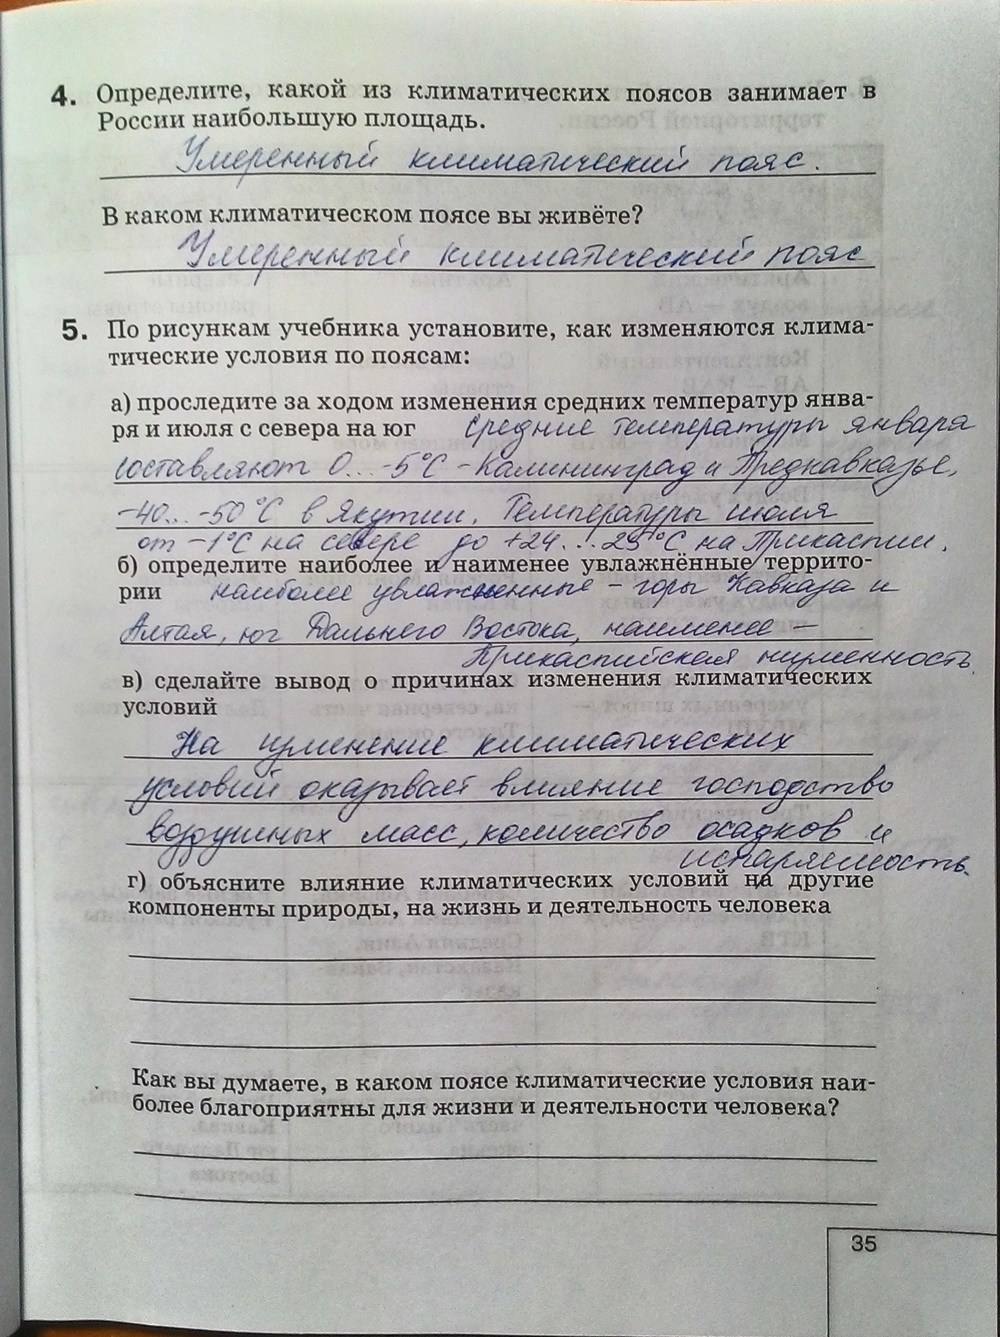 4. Определите, какой из климатических поясов занимает в
России наибольшую площадь.
Умеренный климатический пояс.
В каком климатическом поясе вы живёте?
Умеренный климатический пояс
5. По рисункам учебника установите, как изменяются клима-
тические условия по поясам:
а) проследите за ходом изменения средних температур янва-
ря и июля с севера на юг Средние температуры января
составляют 0...-5°С - Калининград и Предкавказье,
-40...-50°С в Якутии. Температуры июля
от -1°С на севере до +24...25°С на Прикаспии.
б) определите наиболее и наименее увлажнённые террито-
рии наиболее увлажненные - горы Кавказа и
Алтая, юг Дальнего Востока, наименее -
Прикаспийская низменность
в) сделайте вывод о причинах изменения климатических
условий
На изменение климатических
условий оказывает влияние господство
воздушных масс, количество осадков и
испаряемость.
г) объясните влияние климатических условий на другие
компоненты природы, на жизнь и деятельность человека
Как вы думаете, в каком поясе климатические условия наи-
более благоприятны для жизни и деятельности человека?
35